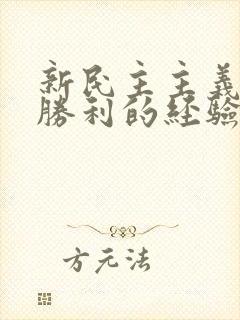 新民主主義
勝利的経驗
方元法